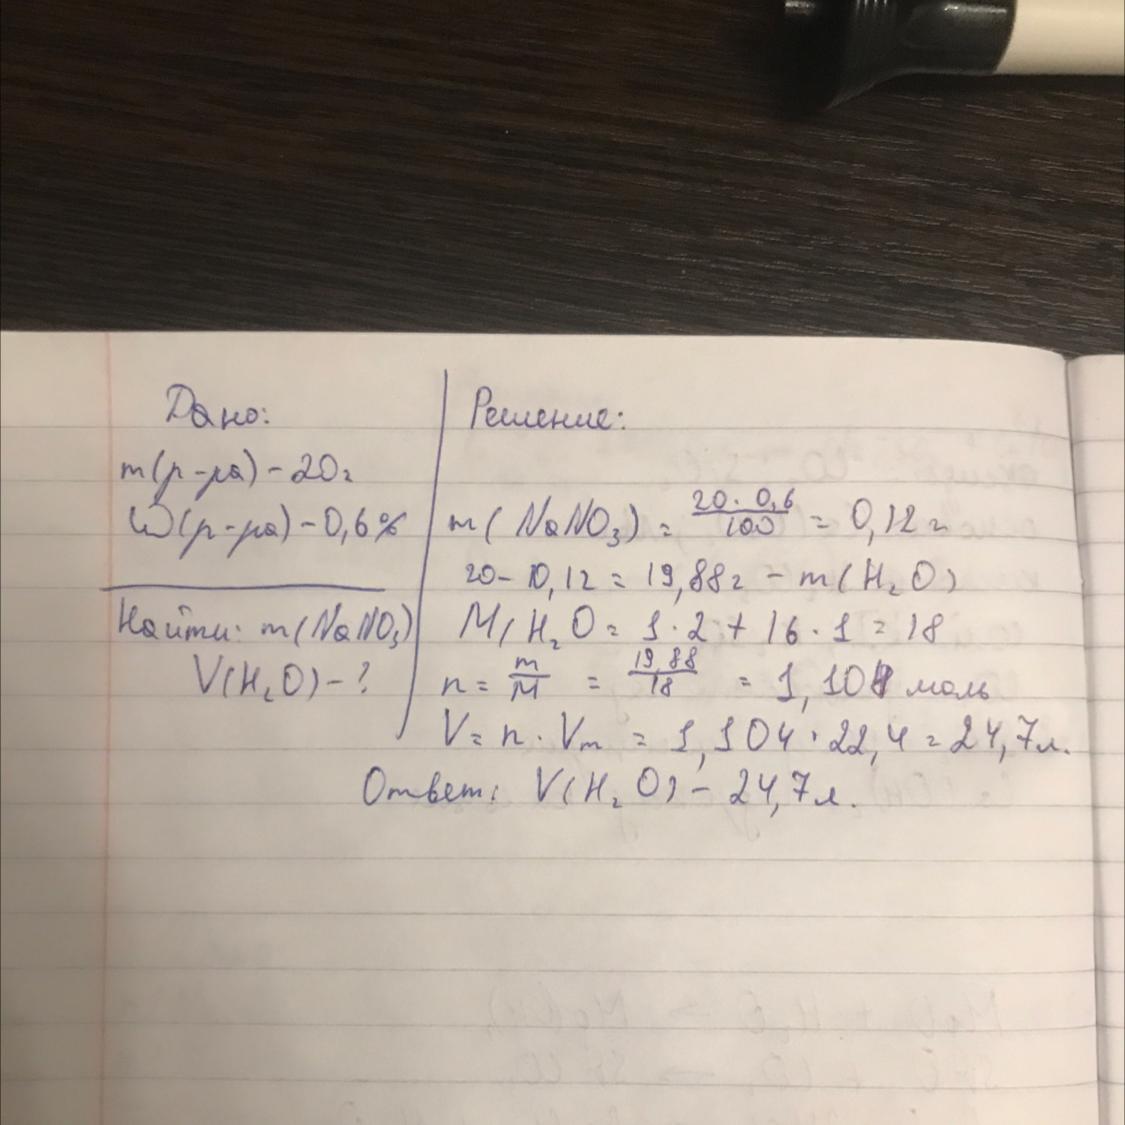 Дано:
m(р-ра) - 20г
W(р-ра) - 0,6%
Найти: m(NaNO₃)
V(H₂O) - ?
Решение:
m(NaNO₃) = 20·0,6/100 = 0,12г
20 - 0,12 = 19,88г - m(H₂O)
M(H₂O = 1·2 + 16·1 = 18
n = m/M = 19,88/18 = 1,104 моль
V = n·Vm = 1,104·22,4 = 24,7л.
Ответ: V(H₂O) - 24,7л.